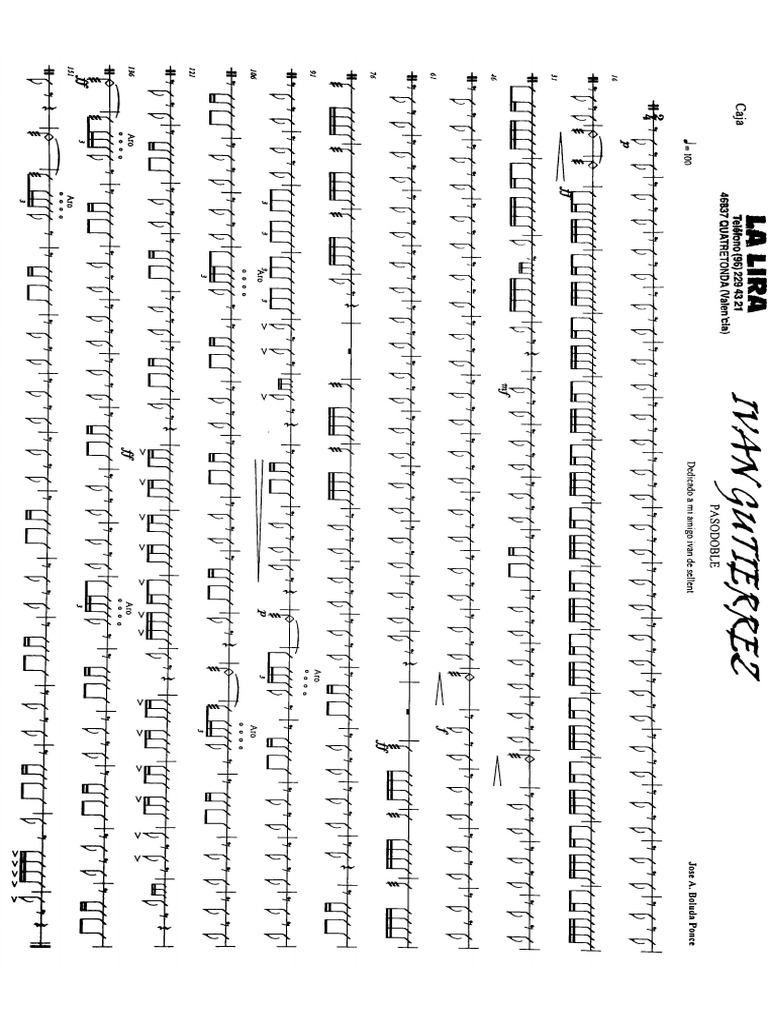 LA LIRA
Teléfono (96) 229 43 21
46837 QUATRETONDA (Valencia)
IVAN GUTIERREZ
PASODOBLE
Dedicado a mi amigo ivan de sellent
Jose A. Boluda Ponce
Caja
♩ = 100
2
4
p
16
ff
31
46
mf
61
f
76
ff
91
106
3 3 3 3
Aro
p
Aro
3
121
Aro
3
Aro
3
136
ff
ff
Aro
3
Aro
3
151
Aro
3